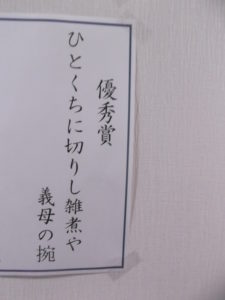 優秀賞
ひとくちに切りし雑煮や
義母の捥